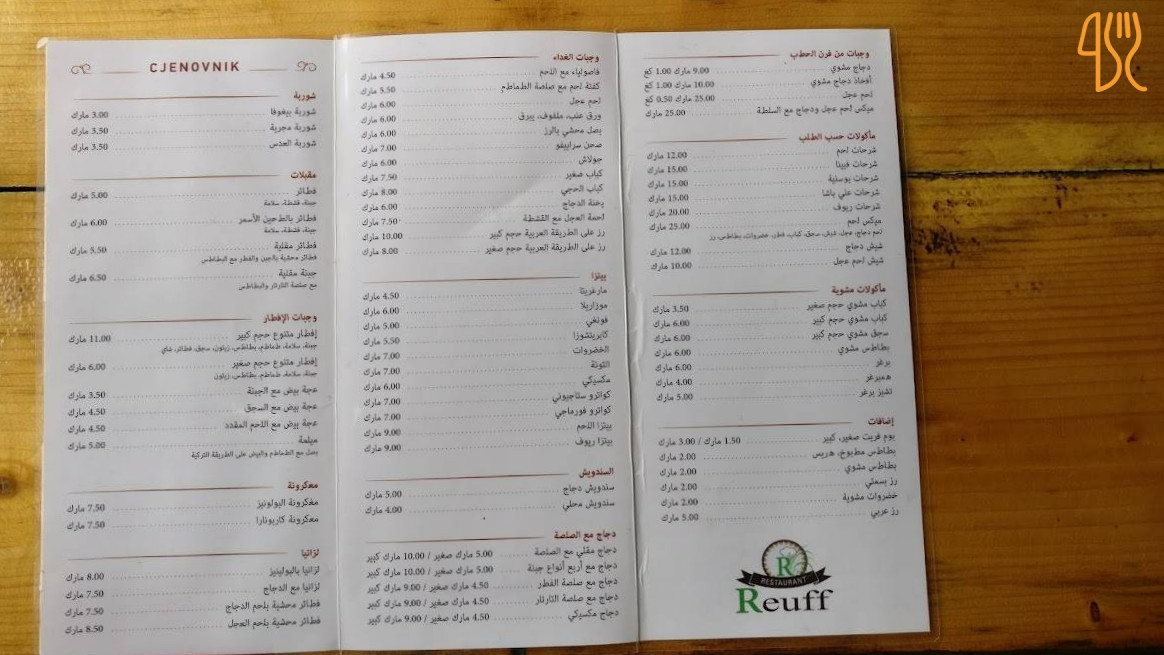 CJENOVNIK
شوربة
شوربة بيغوفا 3.00 مارك
شوربة مجرية 3.50 مارك
شوربة العدس 3.50 مارك
مقبلات
فطائر 5.00 مارك
جبنة، قشطة، سلامة
فطائر بالطحين الأسمر 6.00 مارك
جبنة، قشطة، سلامة
فطائر مقلية 5.50 مارك
فطائر محشية بالجبن والفطر مع البطاطس
جبنة مقلية 6.50 مارك
مع صلصة التارتار والبطاطس
وجبات الإفطار
إفطار متنوع حجم كبير 11.00 مارك
جبنة، سلامة، طماطم، بطاطس، زيتون، سجق، فطائر، شاي
إفطار متنوع حجم صغير 6.00 مارك
جبنة، سلامة، طماطم، بطاطس، زيتون
عجة بيض مع الجبنة 3.50 مارك
عجة بيض مع السجق 4.50 مارك
عجة بيض مع اللحم المقدد 4.50 مارك
ميلمة 5.00 مارك
بصل مع الطماطم والبيض على الطريقة التركية
معكرونة
معكرونة البولونيز 7.50 مارك
معكرونة كاربونارا 7.50 مارك
لزانيا
لزانيا بالبولينيز 8.00 مارك
لزانيا مع الدجاج 7.50 مارك
فطائر محشية بلحم الدجاج 7.50 مارك
فطائر محشية بلحم العجل 8.50 مارك
وجبات الغداء
فاصولياء مع اللحم 4.50 مارك
كفتة لحم مع صلصة الطماطم 5.50 مارك
لحم عجل 6.00 مارك
ورق عنب، ملفوف، يبرق 6.00 مارك
بصل محشي بالرز 6.00 مارك
صحن سراييفو 7.00 مارك
جولاش 6.00 مارك
كباب صغير 7.50 مارك
كباب الحجي 8.00 مارك
يخنة الدجاج 6.00 مارك
لحمة العجل مع القشطة 7.50 مارك
رز على الطريقة العربية حجم كبير 10.00 مارك
رز على الطريقة العربية حجم صغير 8.00 مارك
بيتزا
مارغريتا 4.50 مارك
موزاريلا 6.00 مارك
فونغي 5.00 مارك
كابريتشوزا 5.50 مارك
الخضروات 7.00 مارك
التونة 7.00 مارك
مكسيكي 6.00 مارك
كواترو ستاجيوني 7.00 مارك
كواترو فورماجي 7.00 مارك
بيتزا اللحم 9.00 مارك
بيتزا ريوف 9.00 مارك
السندويش
سندويش دجاج 5.00 مارك
سندويش محلي 4.00 مارك
دجاج مع الصلصة
دجاج مقلي مع الصلصة 5.00 مارك صغير / 10.00 مارك كبير
دجاج مع أربع أنواع جبنة 5.00 مارك صغير / 10.00 مارك كبير
دجاج مع صلصة الفطر 4.50 مارك صغير / 9.00 مارك كبير
دجاج مع صلصة التارتار 4.50 مارك صغير / 9.00 مارك كبير
دجاج مكسيكي 4.50 مارك صغير / 9.00 مارك كبير
وجبات من فرن الحطب
دجاج مشوي 9.00 مارك 1.00 كغ
أفخاذ دجاج مشوي 10.00 مارك 1.00 كغ
لحم عجل 25.00 مارك 0.50 كغ
ميكس لحم عجل ودجاج مع السلطة 25.00 مارك
مأكولات حسب الطلب
شرحات لحم 12.00 مارك
شرحات فيينا 15.00 مارك
شرحات بوسنية 15.00 مارك
شرحات علي باشا 15.00 مارك
شرحات ريوف 20.00 مارك
ميكس لحم 25.00 مارك
لحم دجاج، عجل، شيش، سجق، كباب، فطر، خضروات، بطاطس، رز
شيش دجاج 12.00 مارك
شيش لحم عجل 10.00 مارك
مأكولات مشوية
كباب مشوي حجم صغير 3.50 مارك
كباب مشوي حجم كبير 6.00 مارك
سجق مشوي حجم كبير 6.00 مارك
بطاطس مشوي 6.00 مارك
برغر 6.00 مارك
همبرغر 4.00 مارك
تشيز برغر 5.00 مارك
إضافات
بوم فريت صغير، كبير 1.50 مارك / 3.00 مارك
بطاطس مطبوخ، هريس 2.00 مارك
بطاطس مشوي 2.00 مارك
رز بسمتي 2.00 مارك
خضروات مشوية 2.00 مارك
رز عربي 5.00 مارك
R
RESTAURANT
Reuff